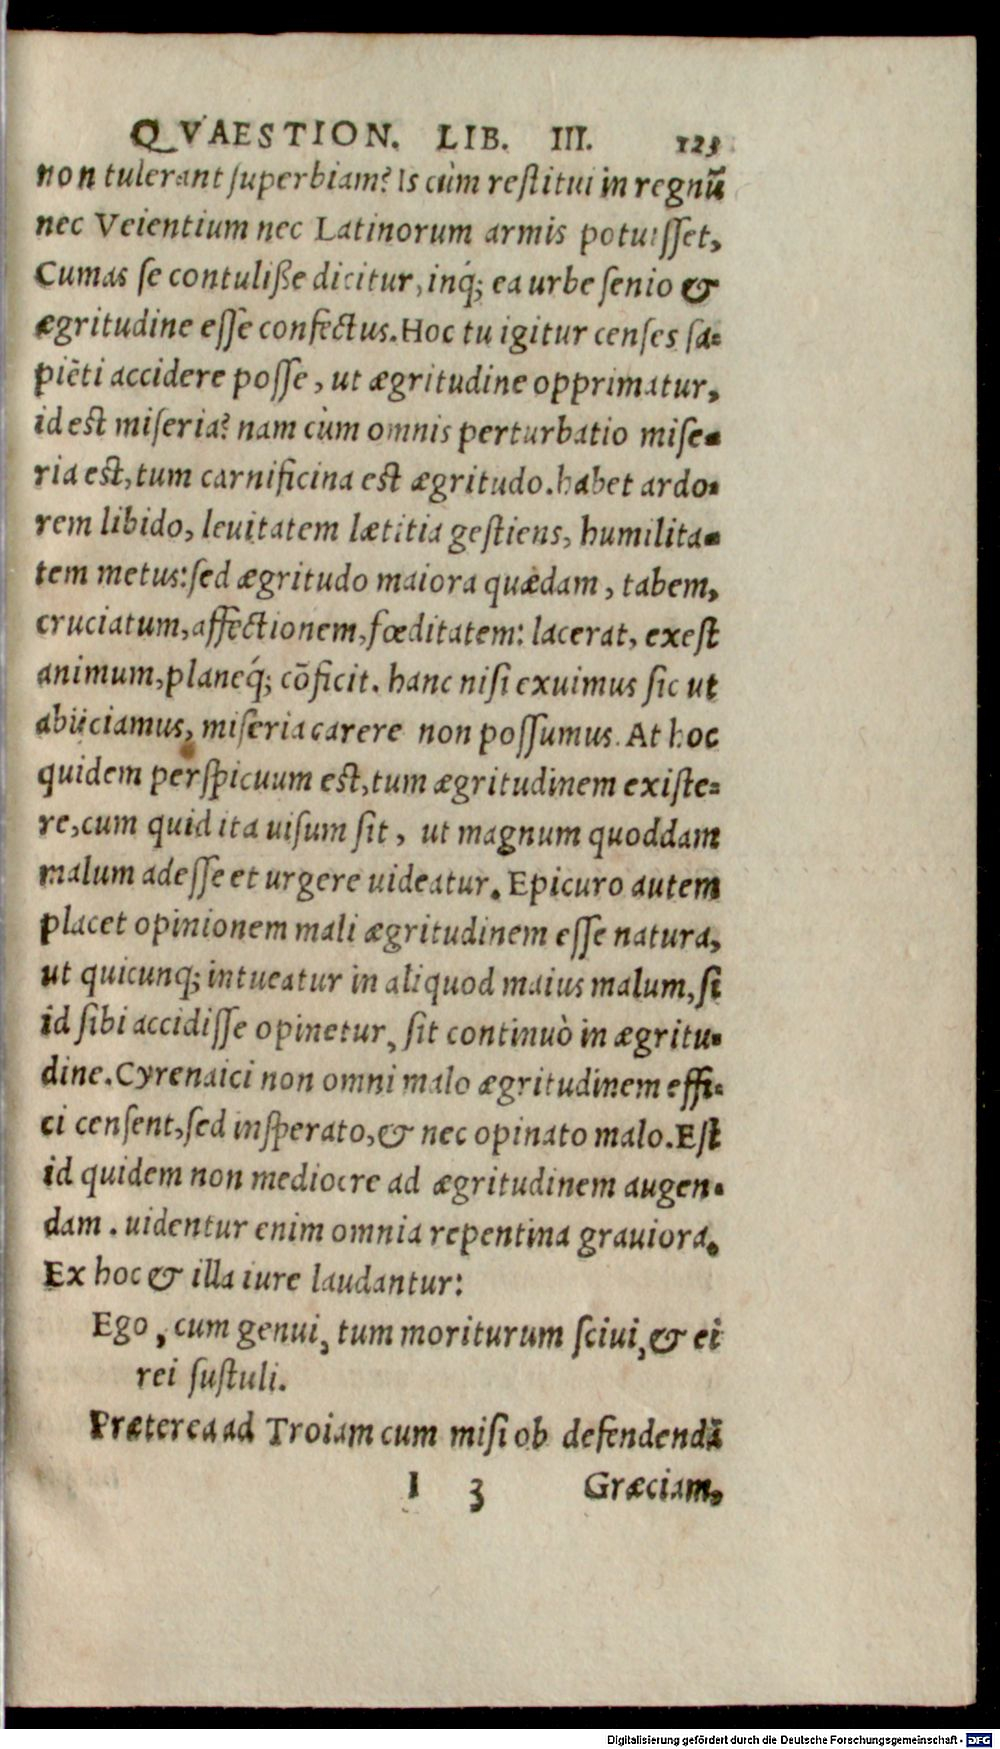 QVAESTION. LIB. III. 123
non tulerant ſuperbiam? Is cùm reſtitui in regnũ
nec Veientium nec Latinorum armis potuiſſet,
Cumas ſe contuliße dicitur, inq́; ea urbe ſenio &
ægritudine eſſe confectus. Hoc tu igitur cenſes ſa-
piẽti accidere poſſe, ut ægritudine opprimatur,
id est miſeria? nam cùm omnis perturbatio miſe-
ria est, tum carnificina est ægritudo. habet ardo-
rem libido, leuitatem lætitia geſtiens, humilita-
tem metus: ſed ægritudo maiora quædam, tabem,
cruciatum, affectionem, fœditatem: lacerat, exeſt
animum, planeq́; cõficit. hanc niſi exuimus ſic ut
abijciamus, miſeria carere non poſſumus. At hoc
quidem perſpicuum est, tum ægritudinem exiſte-
re, cum quid ita uiſum ſit, ut magnum quoddam
malum adeſſe et urgere uideatur. Epicuro autem
placet opinionem mali ægritudinem eſſe natura,
ut quicunq; intueatur in aliquod maius malum, ſi
id ſibi accidiſſe opinetur, ſit continuò in ægritu-
dine. Cyrenaici non omni malo ægritudinem effi-
ci cenſent, ſed inſperato, & nec opinato malo. Eſt
id quidem non mediocre ad ægritudinem augen-
dam. uidentur enim omnia repentina grauiora.
Ex hoc & illa iure laudantur:
Ego, cum genui, tum moriturum ſciui, & ei
rei ſuſtuli.
Præterea ad Troiam cum miſi ob defendendã
I 3 Græciam,
Digitalisierung gefördert durch die Deutsche Forschungsgemeinschaft - DFG